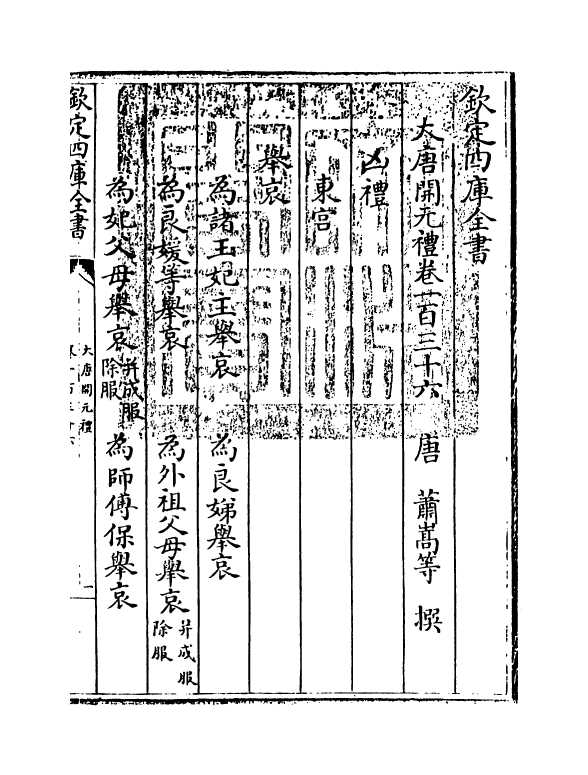 欽定四庫全書
大唐開元禮卷一百三十六　唐　蕭嵩等　撰
凶禮
東宫
舉哀
為諸王妃主舉哀　為良娣舉哀
為良媛等舉哀　為外祖父母舉哀 并成服 除服
為妃父母舉哀 并成服 除服　為師傅保舉哀
欽定四庫全書
大唐開元禮
卷一百三十六
一